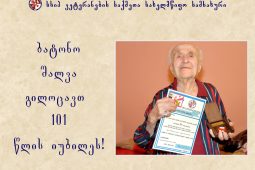 სსიპ ვეტერანების საქმეთა სახელმწიფო სამსახური
ბატონო
შალვა
გილოცავთ
101
წლის იუბილეს!